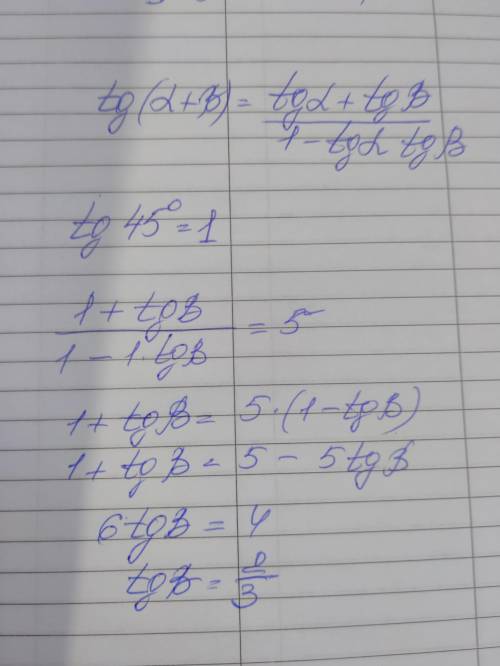 tg(α+β) = (tgα + tgβ)/(1 - tgα tgβ)
tg 45° = 1
(1 + tgβ)/(1 - 1·tgβ) = 5
1 + tgβ = 5·(1 - tgβ)
1 + tgβ = 5 - 5tgβ
6tgβ = 4
tgβ = 2/3